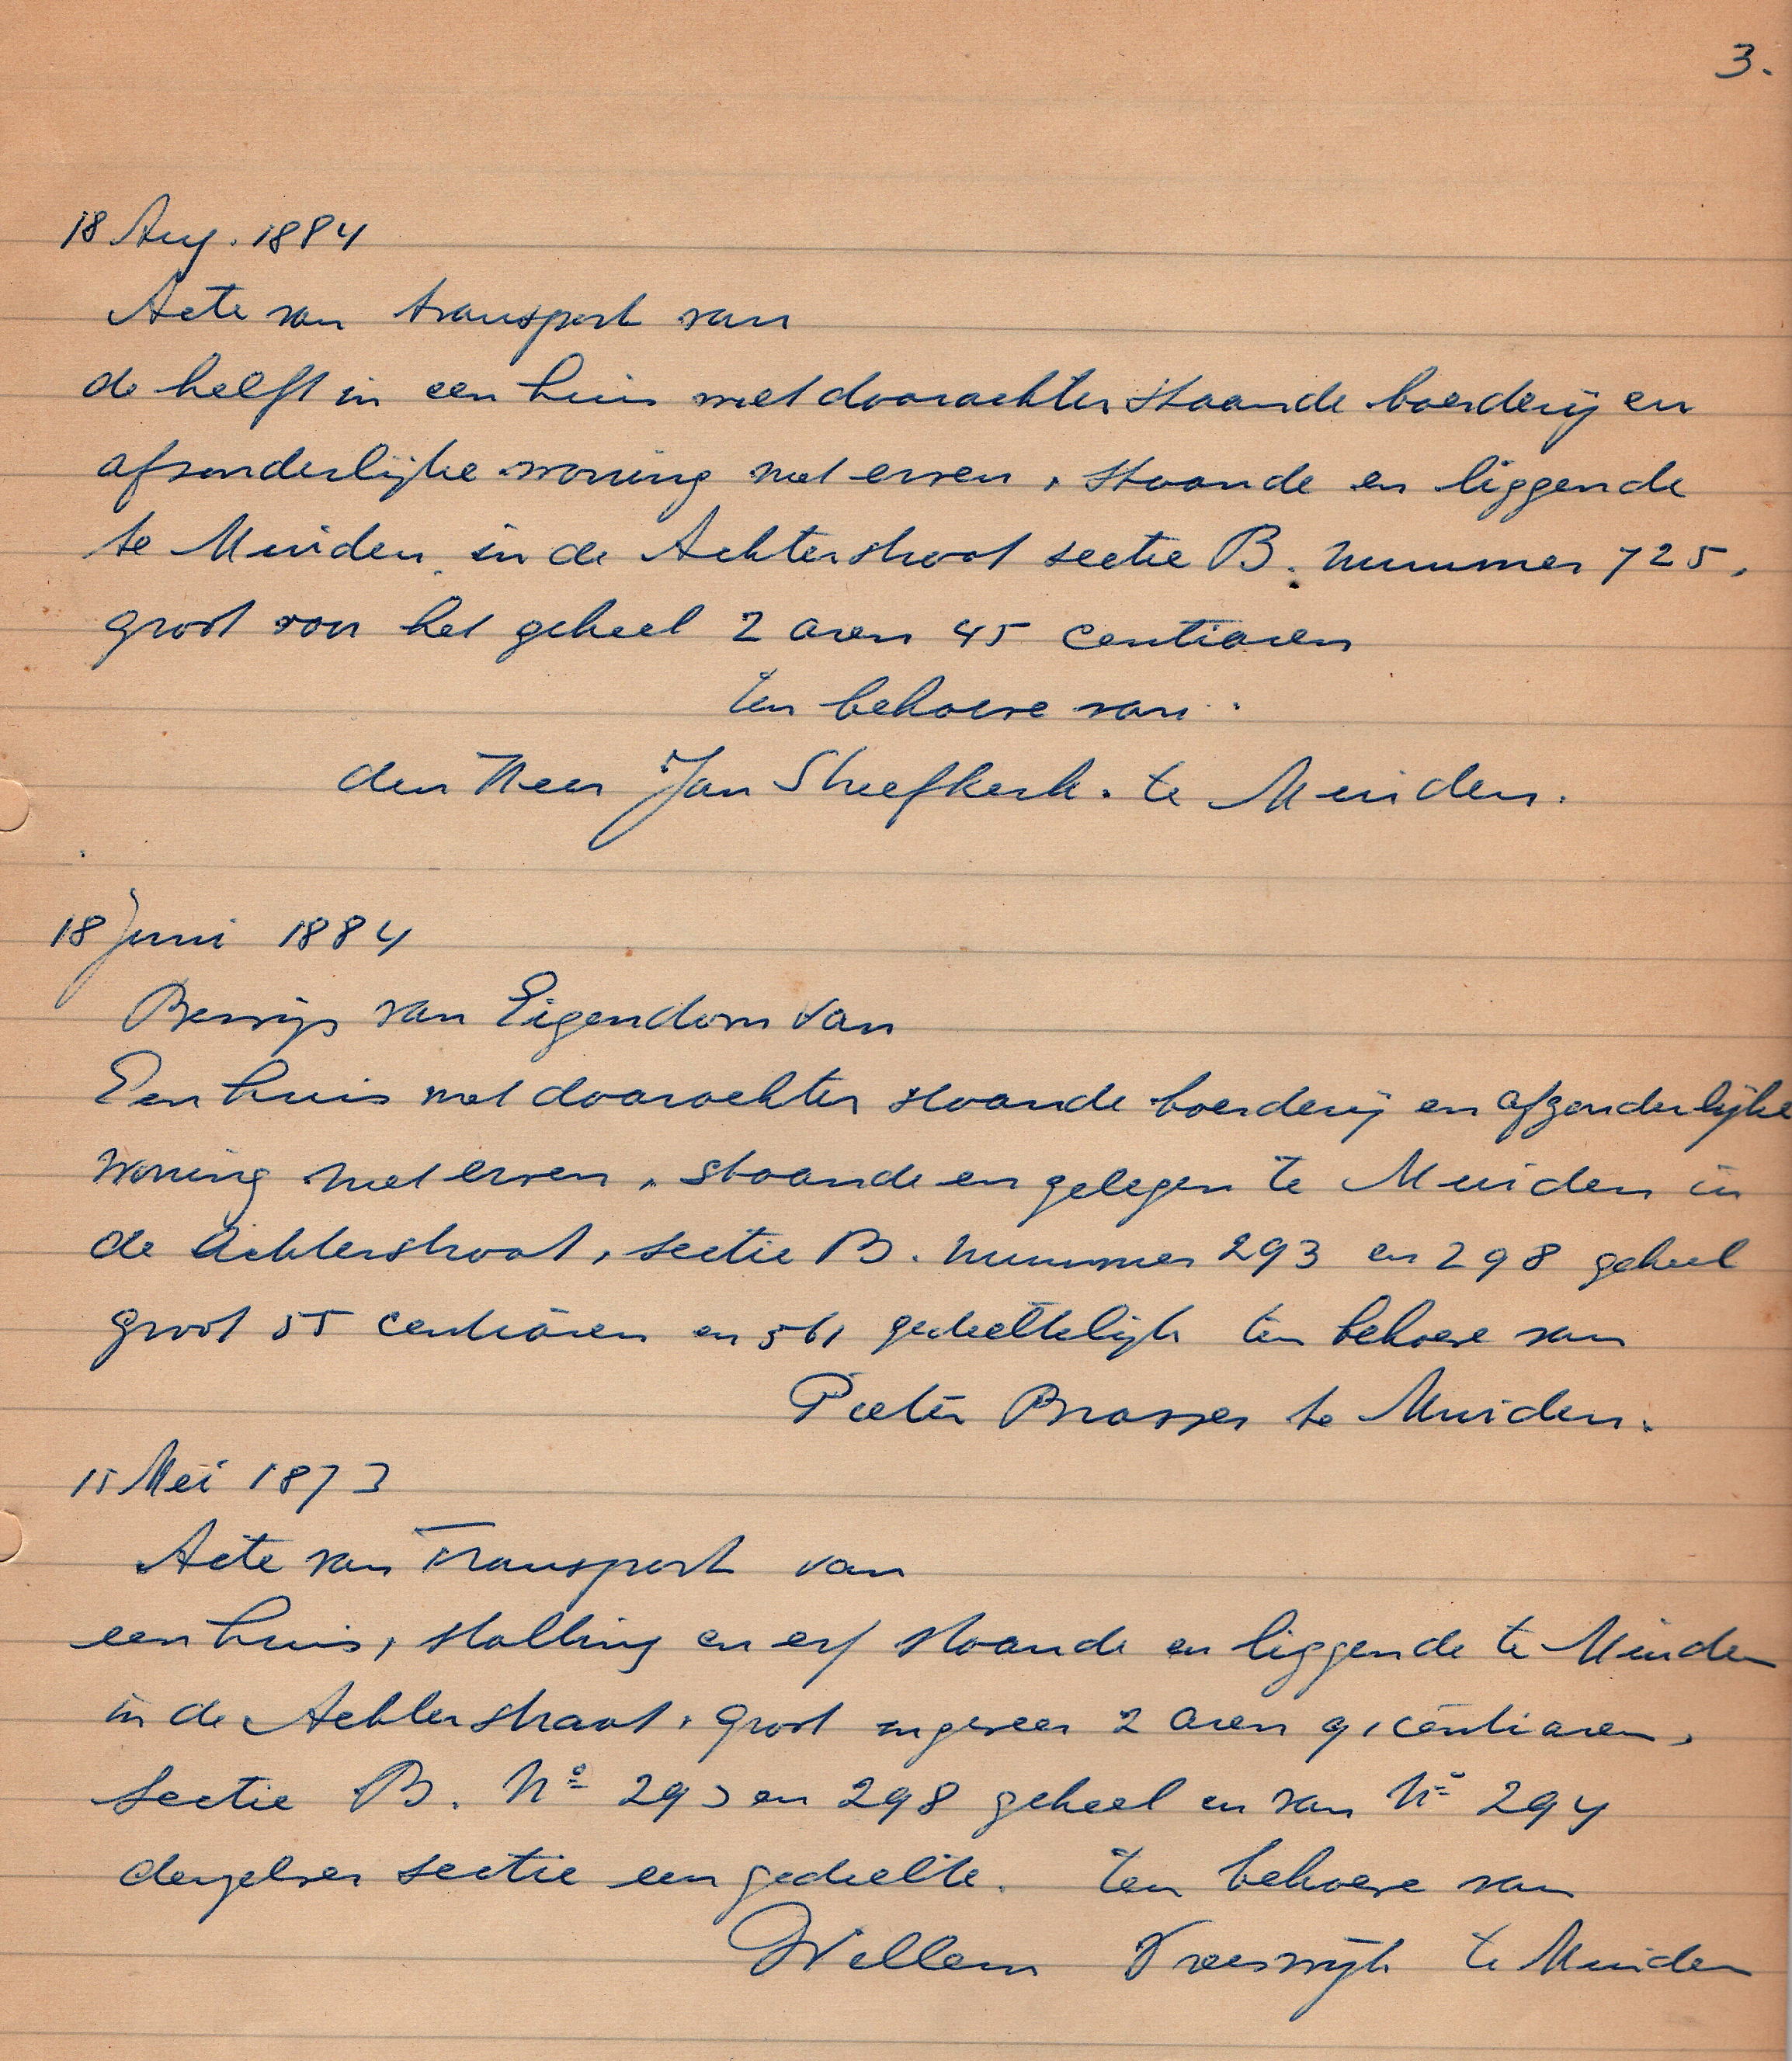 3.
18 Aug. 1884
Acte van transport van
de helft in een huis met daarachter staande boerderij en
afsonderlijke woning met erven, staande en liggende
te Muiden in de Achterstraat sectie B. nummer 725,
groot voor het geheel 2 aren 45 centiaren
ten behoeve van
den Heer Jan Streefkerk. te Muiden.
18 Juni 1884
Bewijs van Eigendom van
Een huis met daarachter staande boerderij en afzonderlijke
woning met erven, staande en gelegen te Muiden in
de Achterstraat, sectie B. nummer 293 en 298 geheel
groot 55 centiaren en gedeeltelijk ten behoeve van
Pieter Brasser te Muiden.
15 Mei 1873
Acte van Transport van
een huis, stalling en erf staande en liggende te Muiden
in de Achterstraat, groot ongeveer 2 aren 91 centiaren,
Sectie B. No 293 en 298 geheel en van No 294
derzelver sectie een gedeelte. ten behoeve van
Willem Vreeswijk te Muiden